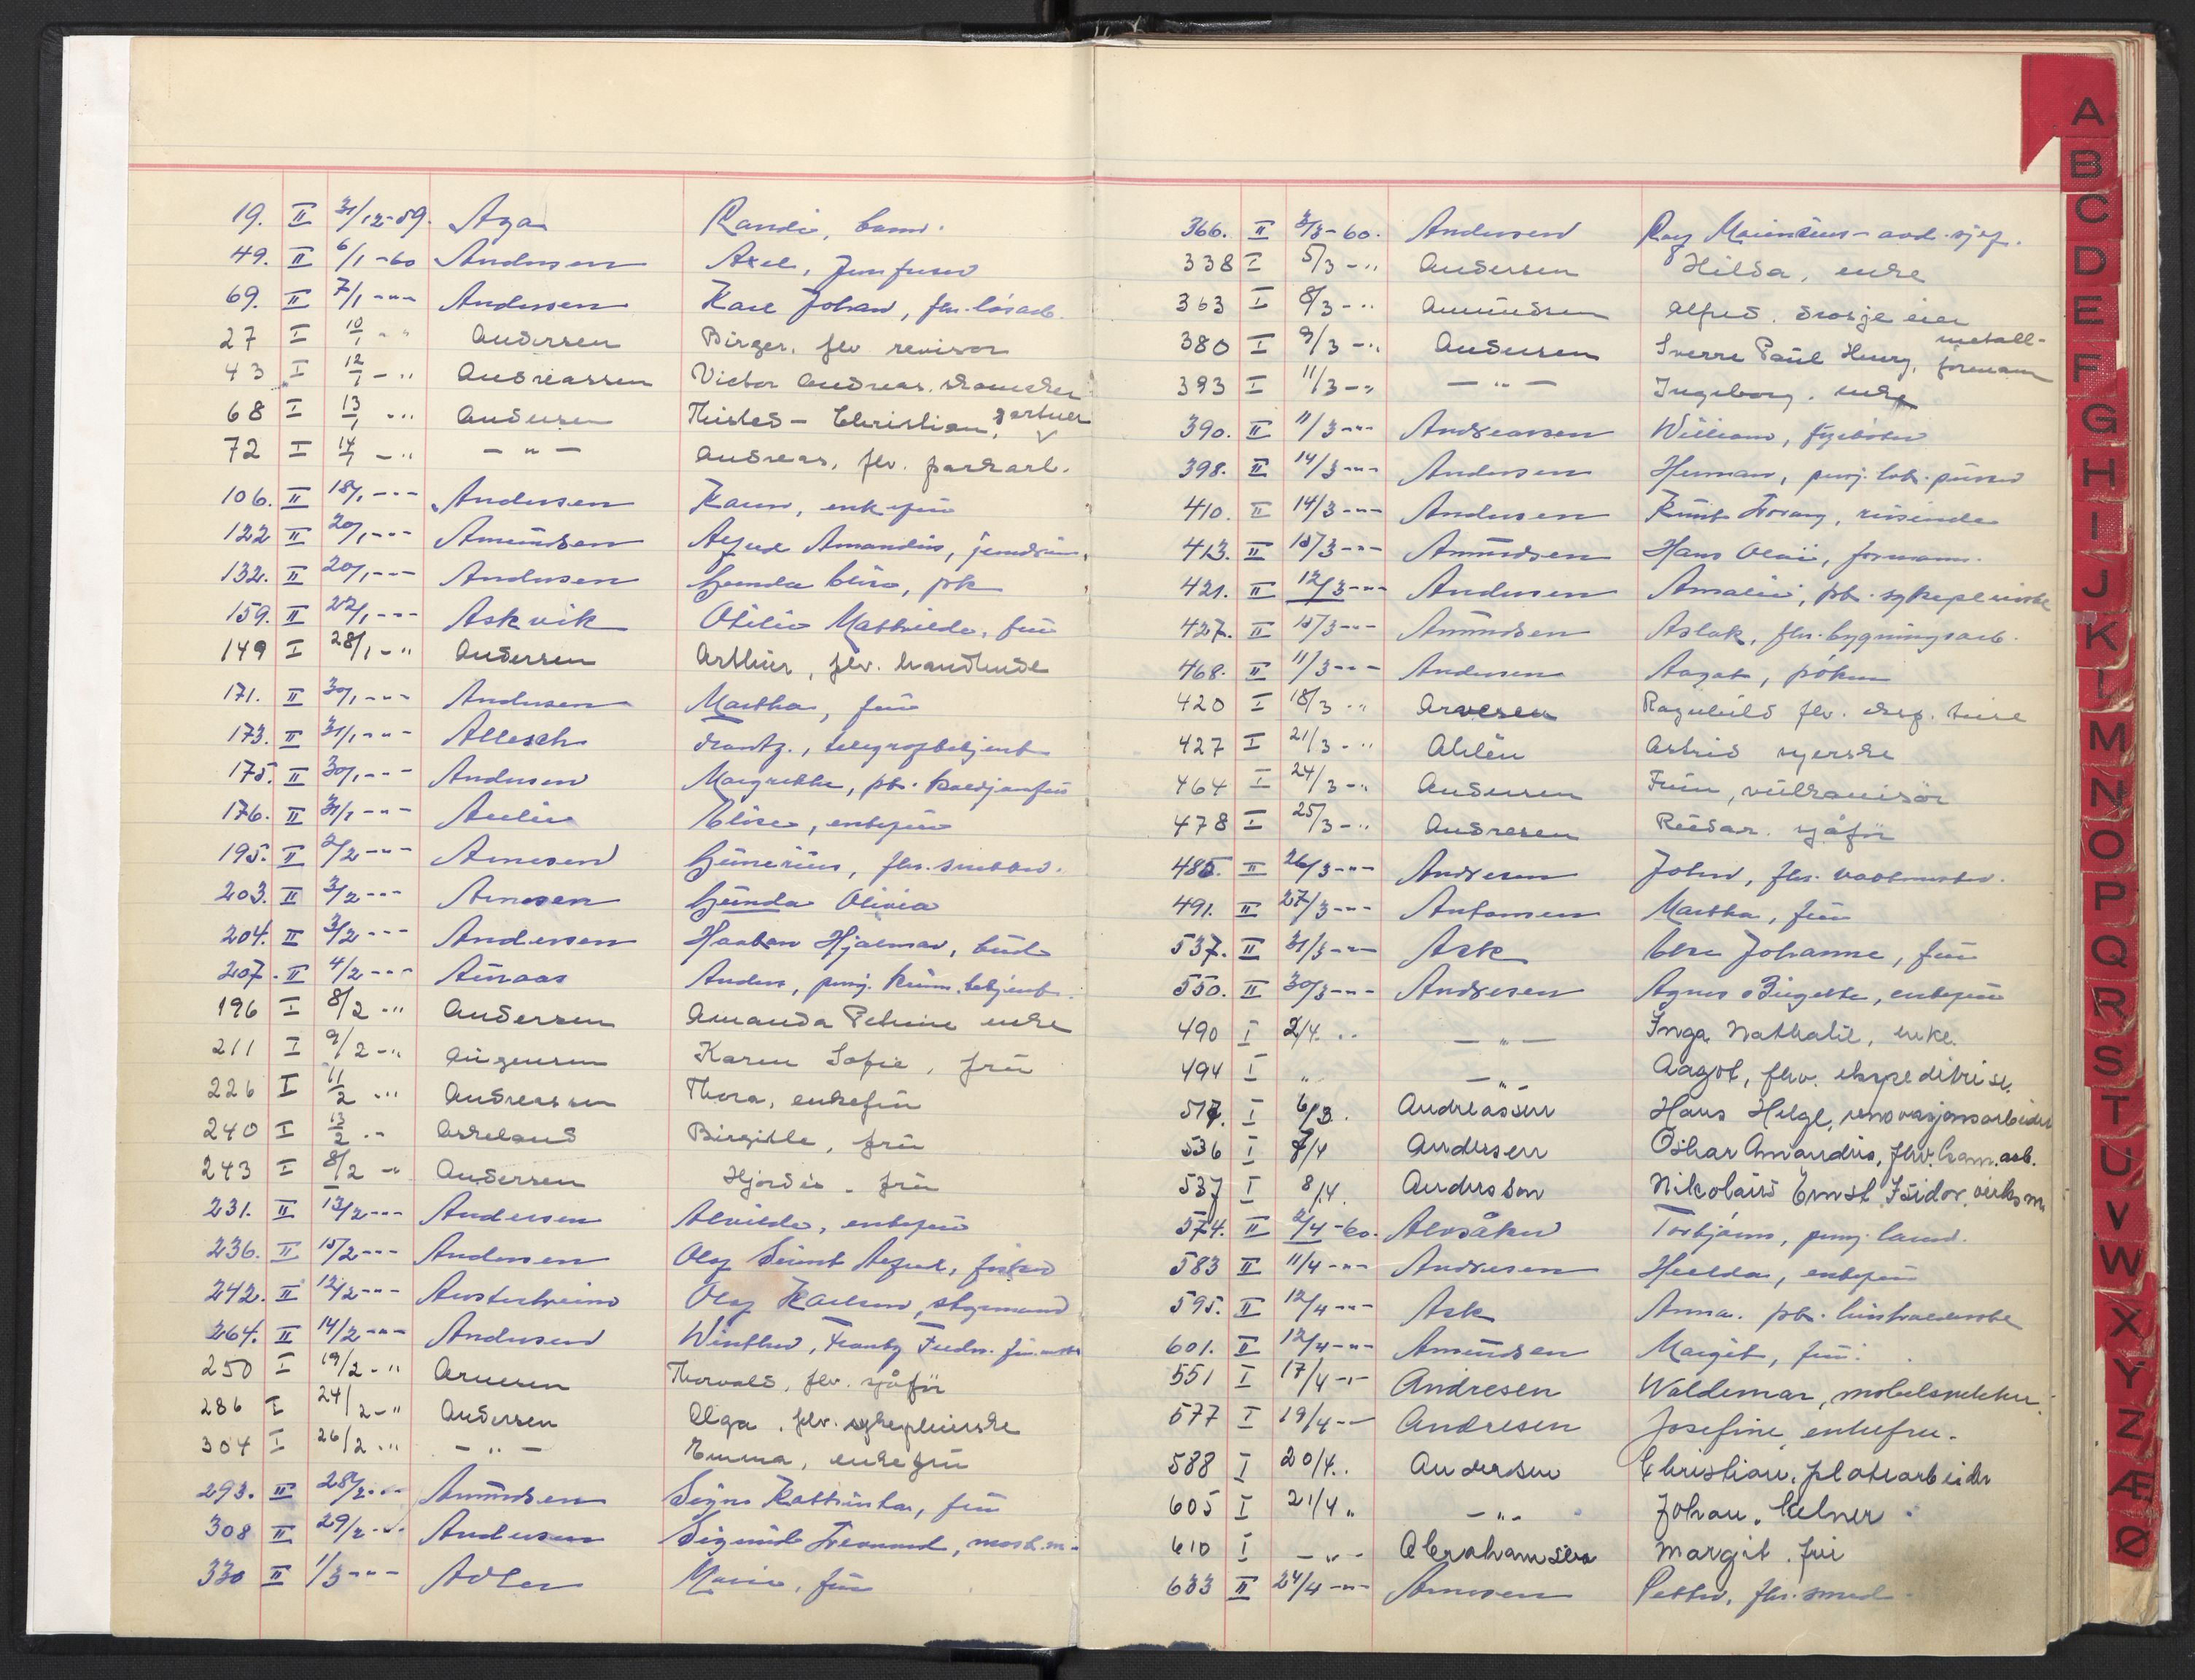 19. II 31/12-59. Aga Randi, barn.
49. II 6/1-60 Andersen Axel,
69. II 7/1 -"- Andersen Karl Johan, fhv. løsarb.
27 I 10/1 -" Andersen Birger, fhv revisor
43 I 12/1 -" Andreassen Victor Andreas, skomaker
68 I 13/1 -" Andersen Thisted - Christian, gartner
72 I 14/1 -" - " - Andreas, fhv. parkarb.
106. II 18/1 -"- Andersen Karen, enkefrü
122 II 20/1 -"- Amündsen Alfred Amandüs,
132. II 20/1 -"- Andersen
159. II 22/1 -"- Askvik Otilie Mathilde, frü
149 I 28/1 -" Andersen Arthür, fhv.
171. II 30/1 -"- Andersen Martha, frü
173. II 31/1 -"- Allesch
175. II 30/1 -"- Andersen Margrethe,
176. II 31/1 -"- Aülie Elise, enkefrü
195. II 2/2 -"- Arnesen Günerius, fhv. snekker.
203. II 3/2 -"- Arnesen Günda Olivia
204. II 3/2 -"- Andersen Haakon Hjalmar, büd
207. II 4/2 -"- Aüraas Anders, penj. betjent.
196 I 8/2 -" Andersen Amanda Petrine enke
211 I 9/2 -" Aügensen Karen Sofie, frü
226 I 11/2 -" Andreassen Thora, enkefrü
240 I 13/2 -" Askeland Birgitte, frü
243 I 8/2 -" Andersen Hjørdis - frü
231. II 13/2 -"- Andersen Alvilde, enkefrü
236. II 15/2 -"- Andersen Olaf Alfred, fisker
242. II 12/2 -"- Austerheim Olaf Karlsen, styrmand
264. II 14/2 -"- Andersen Winther, Frantz Fredr.
250 I 19/2 -" Arnesen Thorvald, fhv. sjåfør
286 I 24/2 -" Andersen Olga, fhv. sykepleierske
304 I 26/2 -" - " - Emma, enkefrü
293. II 28/2 -"- Amündsen Signe Kathinka, frü
308 II 29/2 -"- Andersen Sigürd
330 II 1/3 -"- Adler Marie, frü
366. II 3/3-60. Andersen Roy
338 I 5/3 -" Andersen Hilda, enke
363 I 8/3 -" Amündsen Alfred. drosjeeier
380 I 9/3 -" Andersen Sverre Paül Henry, metall-formann
393 I 11/3 -" - " - Ingeborg. enke
390. II 11/3 -"- Andreassen William, fyrbøter
398. II 14/3 -"- Andersen Herman, penj.
410. II 14/3 -"- Andersen Knüt
413. II 15/3 -"- Amündsen Hans Olai, formann.
421. II 12/3 -"- Andersen Amalie, pb. sykepleierske
427. II 15/3 -"- Amündsen Aslak, fhv. bygningsarb.
468. II 11/3 -"- Andersen Aagot,
420 I 18/3 -" Arvesen Ragnhild fhv.
427 I 21/3 -" Ahlén Astrid syerske
464 I 24/3 -" Andersen Finn, vülkanisør
478 I 25/3 -" Andresen Reidar. sjåfør
485. II 26/3 -"- Andresen John, fhv. vaktmester.
491. II 27/3 -"- Antonsen Martha, frü
537. II 31/3 -"- Ask Else Johanne, frü
550. II 30/3 -"- Andresen Agnes Birgitte, enkefrü
490 I 2/4 " - " - Inga Nathalie, enke.
494 I " - " - Aagot, fhv. ekspeditrise.
517. I 6/3. Andreassen Hans Helge, renovasjonsarbeider
536 I 7/4 Andersen Oskar Amandus, fhv. kom. arb.
537 I 8/4. Andersson Nikolaüs Ernst Isidor,
574. II 2/4-60. Alvsåker Torbjørn, penj.
583 II 11/4 -"- Andresen Hilda, enkefrü
595. II 12/4 -"- Ask Anna. pb.
601. II 12/4 -"- Amündsen Margit, frü.
551 I 17/4 -"- Andresen Waldemar, møbelsnekker.
577 I 19/4 -"- Andresen Josefine, enkefru.
588 I 20/4 " Andersen Christian, platearbeider
605 I 21/4 " - " - Johan, kelner
610 I - " - Abrahamsen Margit. frü
633 II 24/4 -"- Arnesen Petter, fhv. smed.
A
B
C
D
E
F
G
H
I
J
K
L
M
N
O
P
Q
R
S
T
U
V
W
X
Y
Z
Æ
Ø